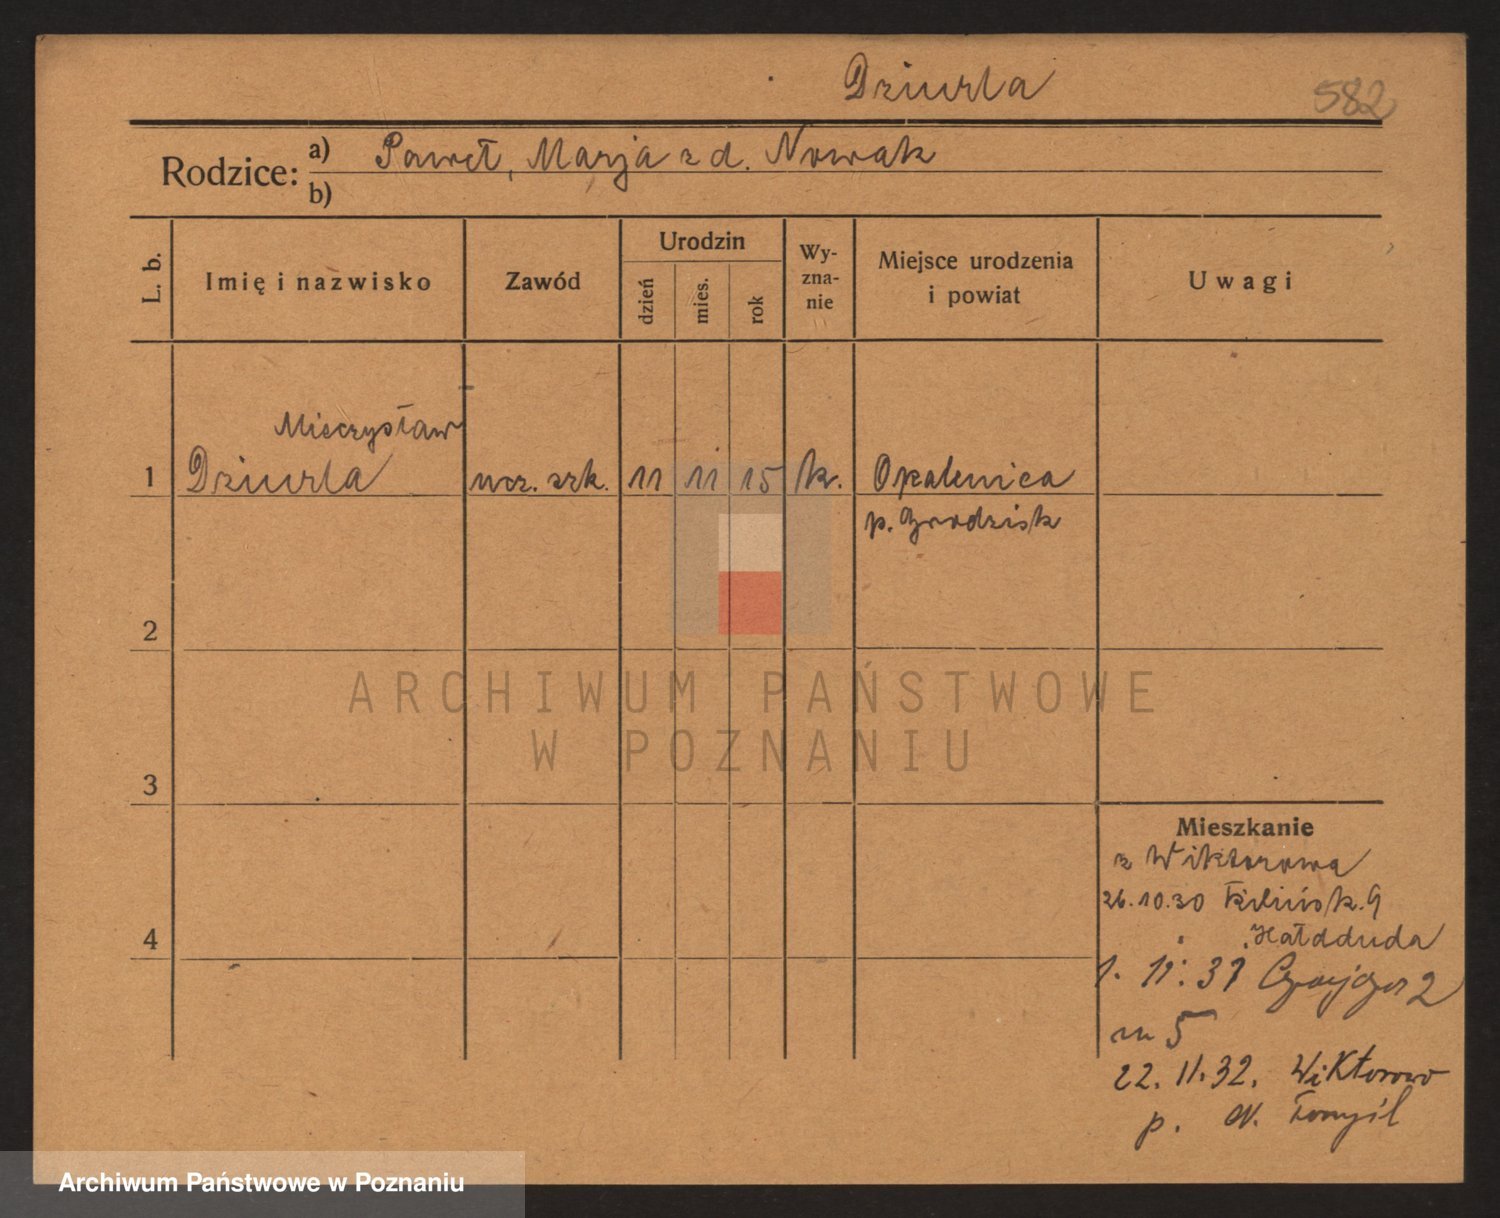 Dziurla
582
Rodzice:
a) Paweł, Marja z d. Nowak
b)
L. b.
Imię i nazwisko
Zawód
Urodzin
dzień
mies.
rok
Wy-
zna-
nie
Miejsce urodzenia
i powiat
Uwagi
Mieczysław
1 Dziurla ucz. szk. 11 11 15 k. Opalenica
p. Grodzisk
2
ARCHIWUM PAŃSTWOWE
W POZNANIU
3
Mieszkanie
z Wiktorowa
26.10.30 9
4
1. 11. 31 2
m 5
22. 11. 32. Wiktorowo
p. N. Tomyśl
Archiwum Państwowe w Poznaniu